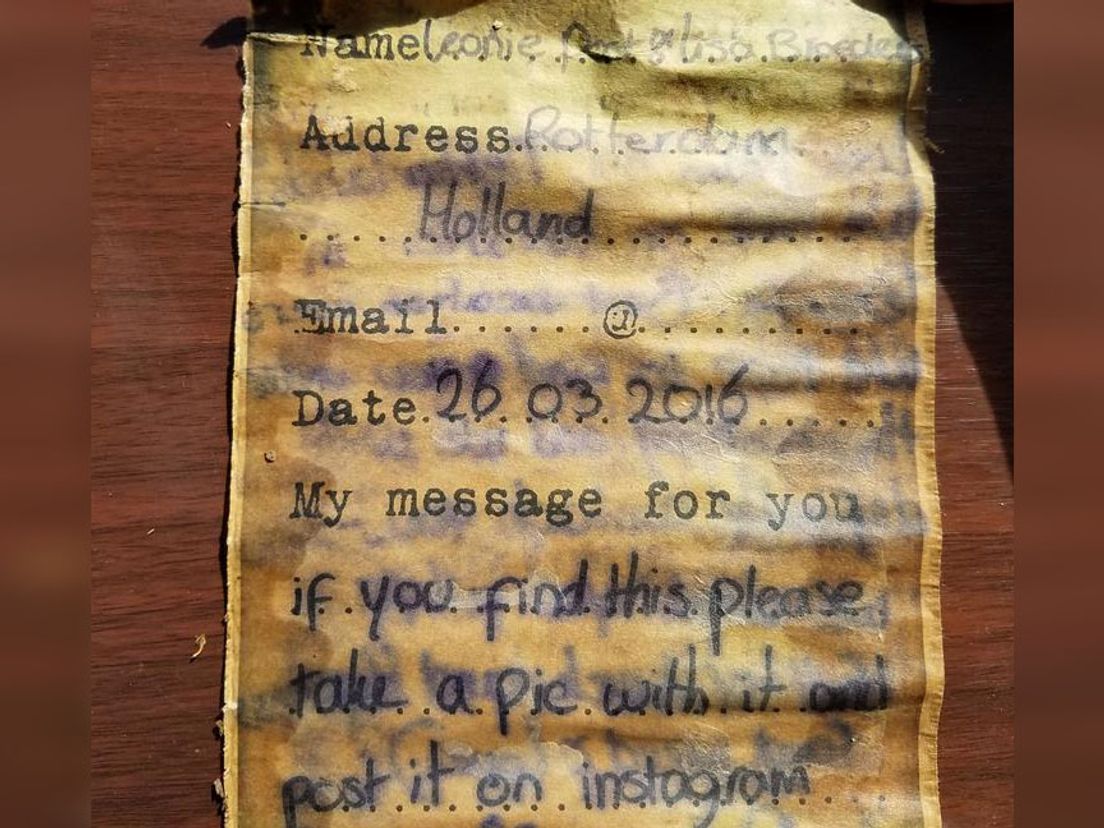 Name Leonie & Lisa
Address. Rotterdam
Holland
Email......@..........
Date. 26. 03. 2016......
My message for you
if you find this please
take a pic with it and
post it on instagram